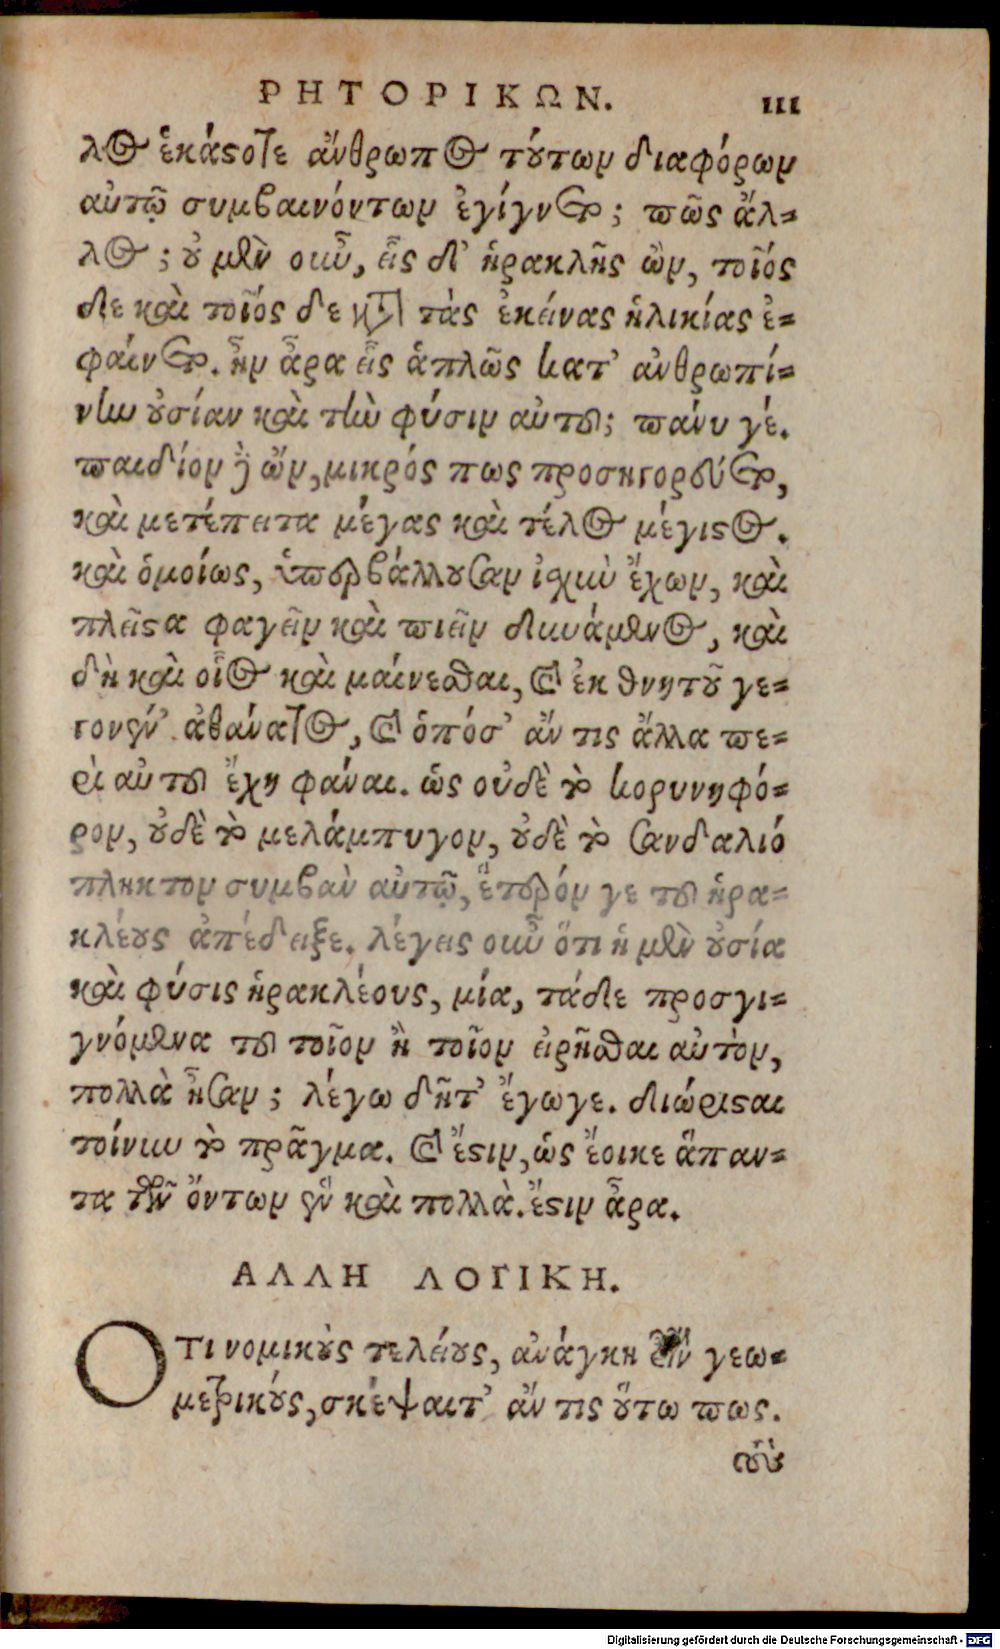 ΡΗΤΟΡΙΚΩΝ. 111
λος ἑκάστοτε ἄνθρωπος τούτων διαφόρων
αὐτῷ συμβαινόντων ἐγίγνετο; πῶς ἄλ-
λος; οὐ μὲν οὖν, εἷς δ' ἡρακλῆς ὢν, τοῖός
δε καὶ τοῖός δε κατὰ τὰς ἐκείνας ἡλικίας ἐ-
φαίνετο. ἦν ἆρα εἷς ἁπλῶς κατ' ἀνθρωπί-
νην οὐσίαν καὶ τὴν φύσιν αὐτοῦ; πάνυ γέ.
παιδίον γὰρ ὤν, μικρός πως προσηγορεύετο,
καὶ μετέπειτα μέγας καὶ τέλος μέγιστος.
καὶ ὁμοίως, ὑπερβάλλουσαν ἰσχὺν ἔχων, καὶ
πλεῖστα φαγεῖν καὶ πιεῖν δυνάμενος, καὶ
δὴ καὶ οἷος καὶ μαίνεσθαι, καὶ ἐκ θνητοῦ γε-
γονὼν ἀθάνατος, καὶ ὁπόσ' ἄν τις ἄλλα πε-
ρὶ αὐτοῦ ἔχῃ φάναι. ὡς οὐδὲ τὸ κορυνηφό-
ρον, οὐδὲ τὸ μελάμπυγον, οὐδὲ τὸ σανδαλιό
πληκτον συμβὰν αὐτῷ, ἕτερόν γε τοῦ ἡρα-
κλέους ἀπέδειξε. λέγεις οὖν ὅτι ἡ μὲν οὐσία
καὶ φύσις ἡρακλέους, μία, τάδε προσγι-
γνόμενα τοῦ τοῖον ἢ τοῖον εἰρῆσθαι αὐτὸν,
πολλὰ ἦσαν; λέγω δῆτ' ἔγωγε. διώρισαι
τοίνυν τὸ πρᾶγμα. καὶ ἔστιν, ὡς ἔοικε ἅπαν-
τα τῶν ὄντων ἓν καὶ πολλὰ. ἔστιν ἆρα.
ΑΛΛΗ ΛΟΓΙΚΗ.
ΟΤΙ νομικοὺς τελείους, ἀνάγκη εἶναι γεω-
μετρικούς, σκέψαιτ' ἄν τις οὕτω πως.